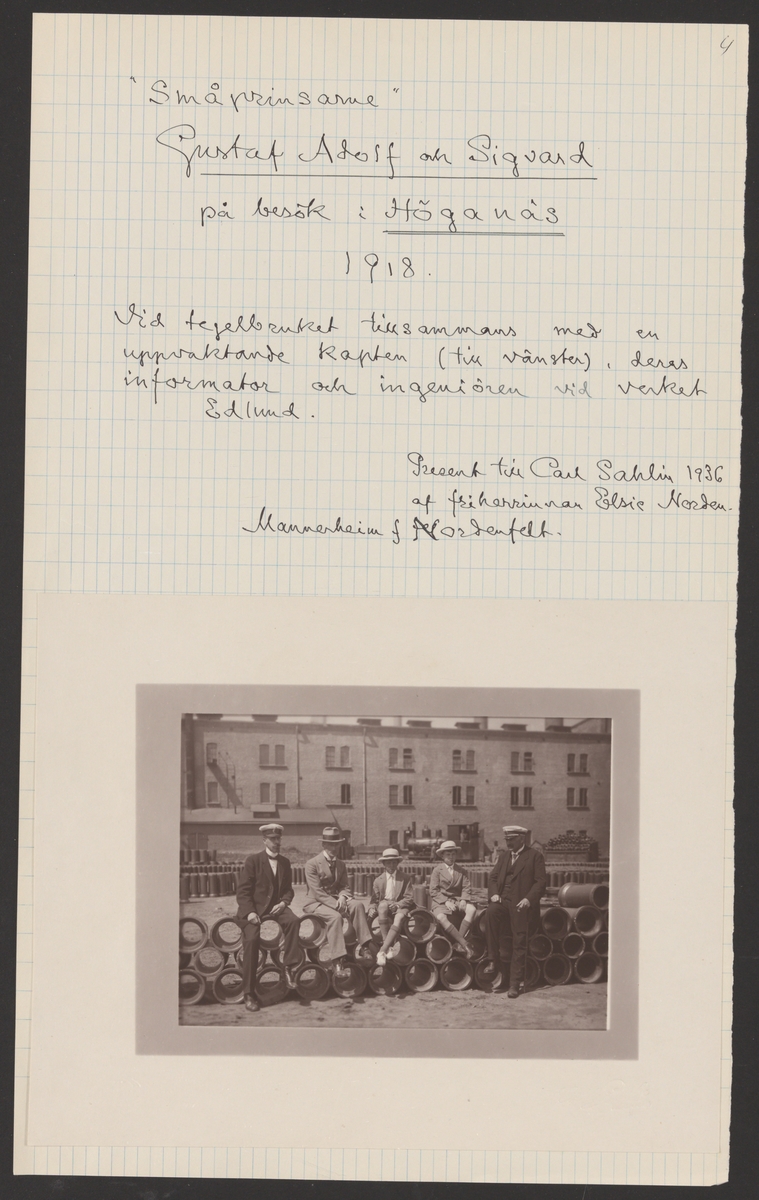 4
"Småprinsarne"
Gustaf Adolf och Sigvard
på besök i Höganäs
1918.
Vid tegelbruket tillsammans med en
uppvaktande kapten (till vänster), deras
informator och ingeniören vid verket
Edlund.
Present till Carl Sahlin 1936
af friherrinnan Elsie Norden-
Mannerheim f Nordenfelt.